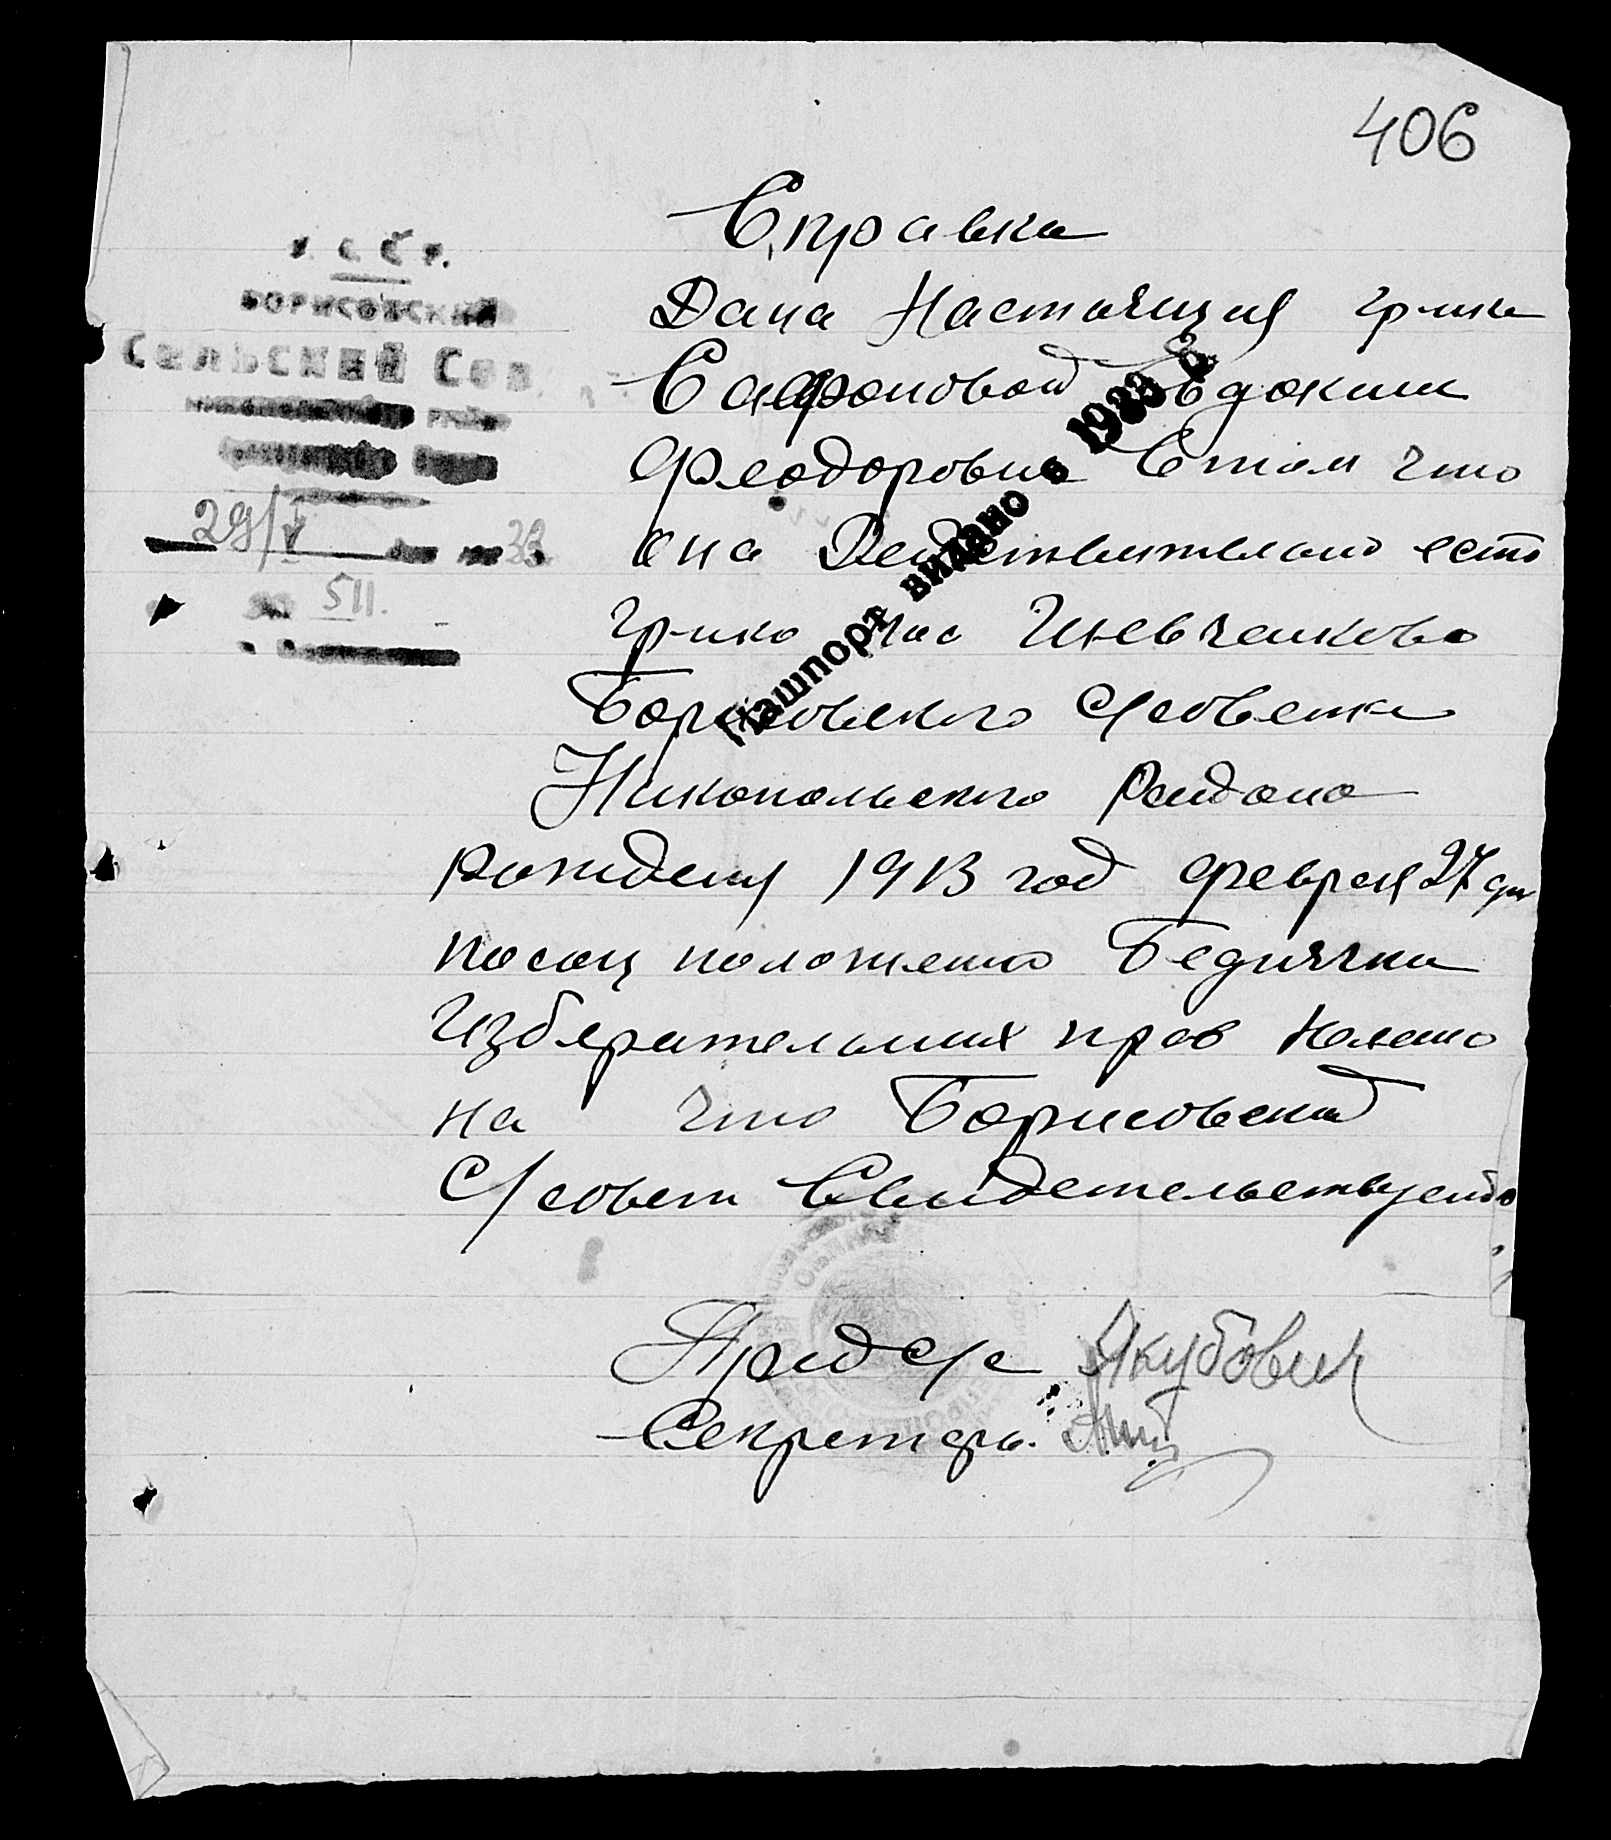 406
У. С. С. Р.
БОРИСОВСКИЙ
СЕЛЬСКИЙ СОВ
29/V 33
511.
Справка
Дана Настоящия гр-ике
Сафроновой Евдокии
Феодоровне Втом что
она Действительно есть
гр-ика
Борисовского С/совета
Никопольского Района
рождения 1913 год февраля 27 дн
посоц положению Беднячка
Избирательних прав
на что Борисовский
С/совет Свидетельствует
Пред С/с Якубович
Секретарь.
Пашпорт видано в 1933 р.